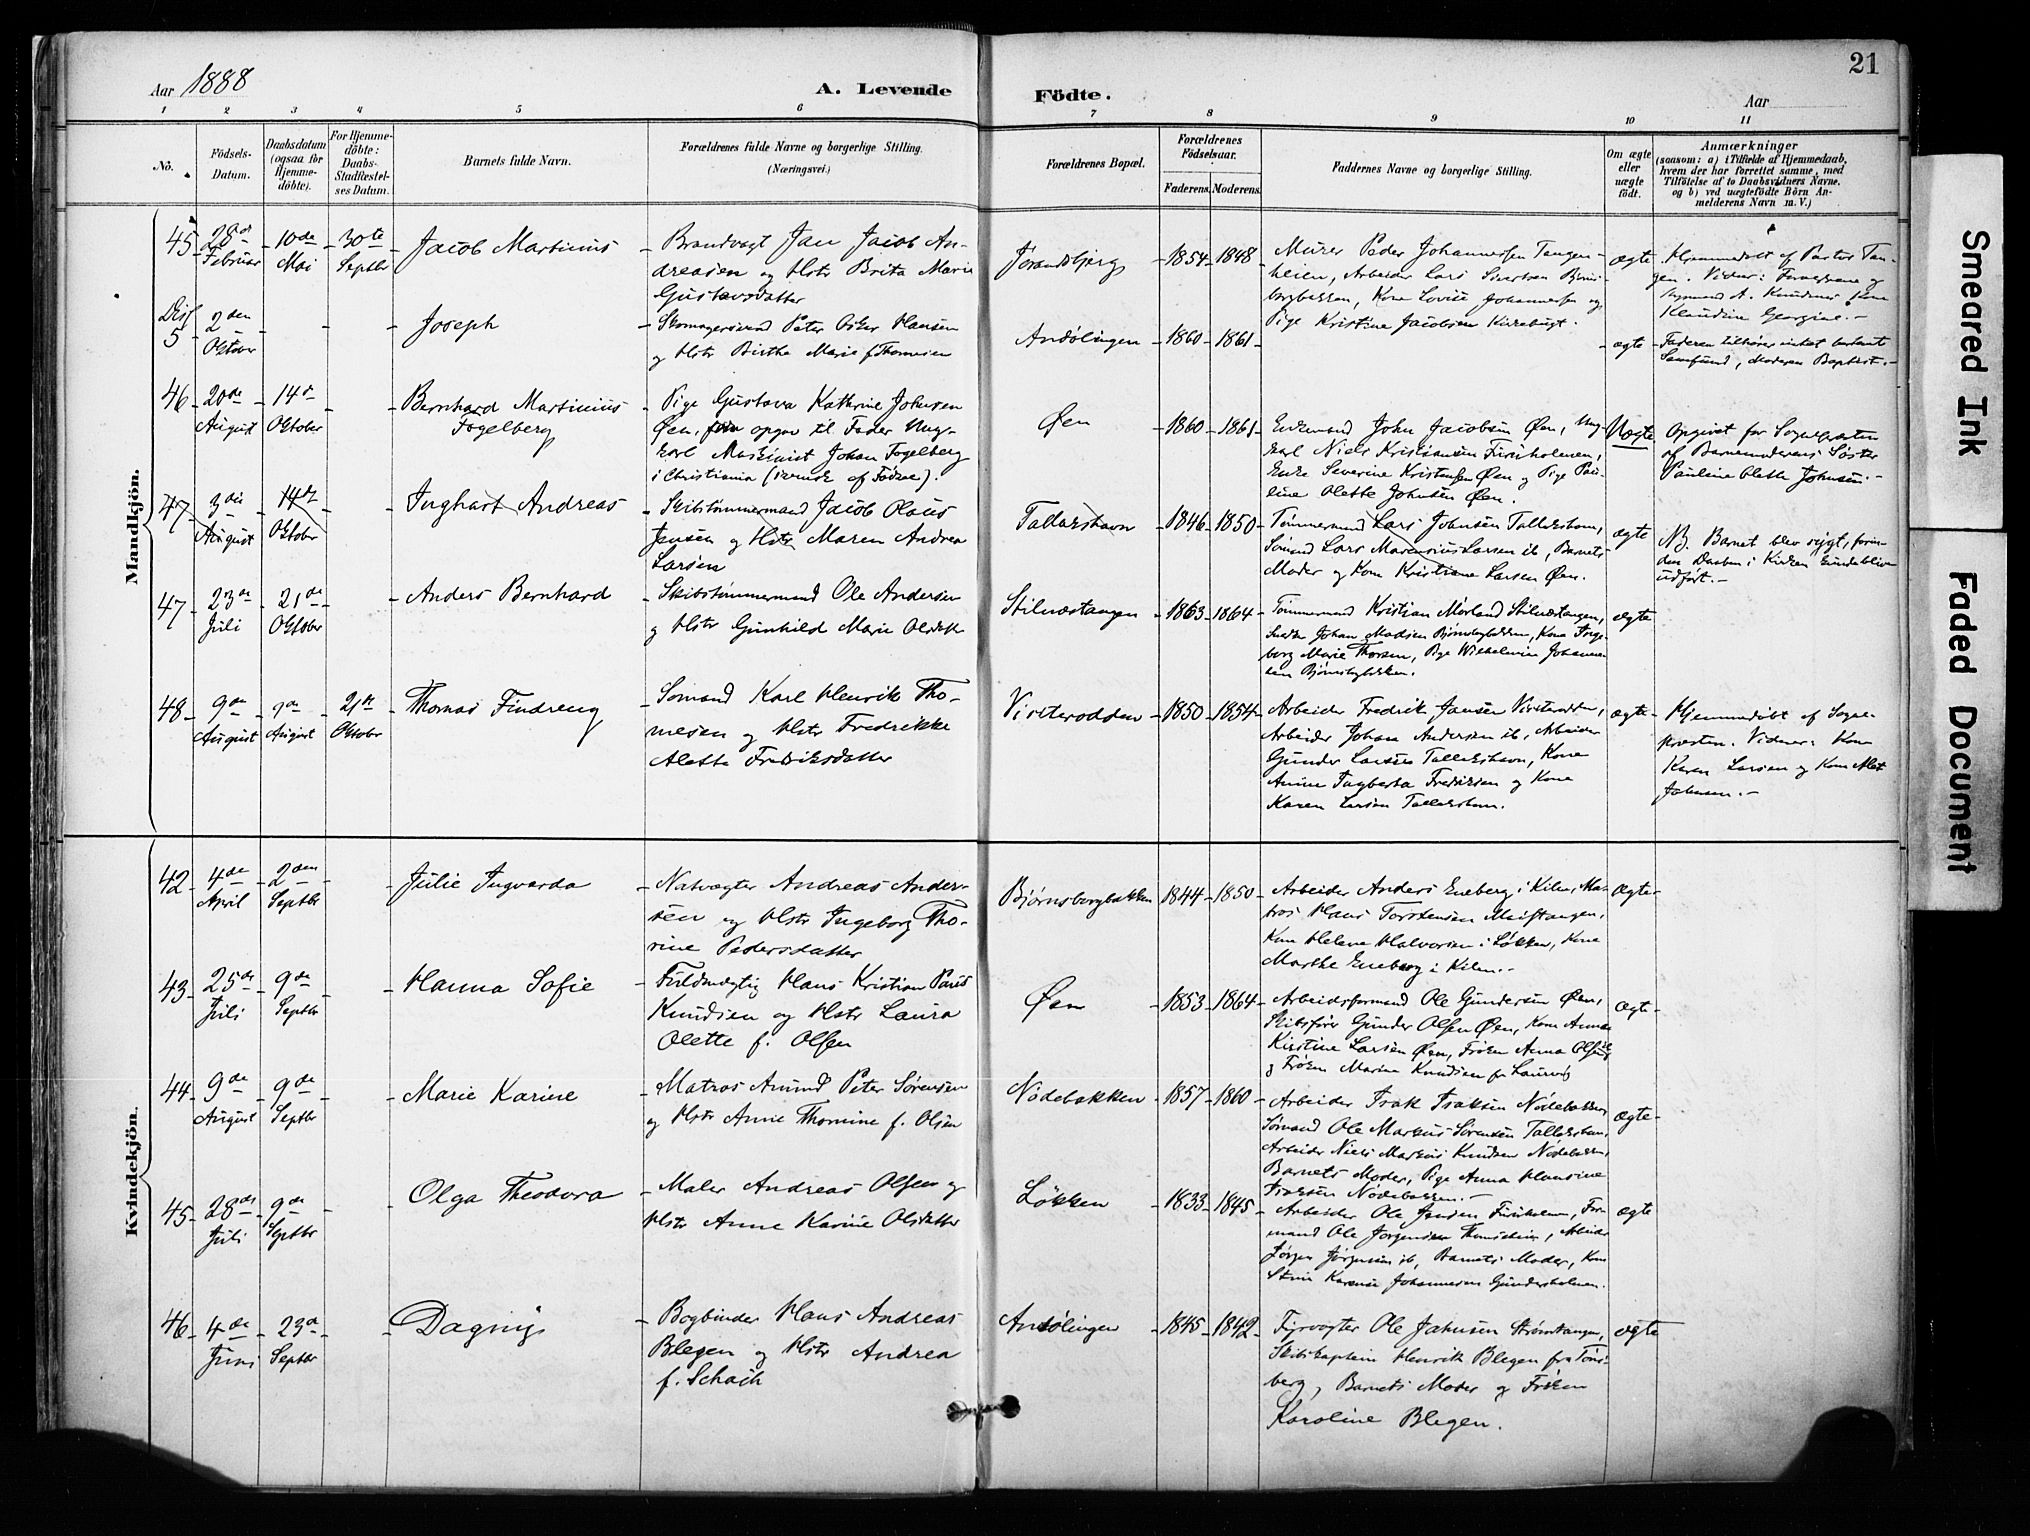 21
Aar 1888
A. Levende Födte.
Aar
1 2 3 4 5 6 7 8 9 10 11
No.
Födsels-Datum.
Daabsdatum (ogsaa for Hjemme-döbte).
For Hjemme-döbte: Daabs-Stadfæstel-ses Datum.
Barnets fulde Navn.
Forældrenes fulde Navne og borgerlige Stilling. (Næringsvei.)
Forældrenes Bopæl.
Forældrenes Födselsaar.
Faderens. Moderens.
Faddernes Navne og borgerlige Stilling.
Om ægte eller uægte födt.
Anmærkninger
(saasom: a) i Tilfælde af Hjemmedaab,
hvem der har forrettet samme, med
Tilföielse af to Daabsvidners Navne,
og b) ved uægtefödte Börn An-
melderens Navn m. V.)
Mandkjön.
45 28de Februar 10de Mai 30te Septbr Jacob Martinius
Brandvagt Jan Jacob An-
dreasen og Hstr Brita Marie
Gustavsdatter
1854 1848
Murer Peder Johannessen Tangen-
heien, Arbeider Lars Sivertsen
Kone Lovise Johannesen og
Pige Kristine Jacobsen Kirkebugt.
ægte
Hjemmedøbt af Pastor Tan-
gen. Vidner:
Kone
Klaudine Georgine.-
Diss 5 2den Oktober Joseph
Skomagersvend Peter Oskar Hansen
og Hstr Birthe Marie f. Thomesen
Andölingen 1860 1861
ægte
Faderen tilhører intet bestemt
Samfund, Moderen Baptist.-
46 20de August 14de Oktober Bernhard Martinius
Fogelberg
Pige Gustava Kathrine Johnsen
Øen, opgav til Fader Ung-
karl Maskinist Johan Fogelberg
i Christiania
Øen 1860 1861
Enkemand John Jacobsen Øen, Ung-
karl Niels Kristiansen Furuholmen,
Enke Severine Kristensen Øen og Pige Pau-
line Olette Johnsen Øen.
Uægte
Opgivet for Sognepresten
af Barnemoderens Søster
Pauline Olette Johnsen.-
47 3die August 14de Oktober Inghart Andreas
Skibstømmermand Jacob Olaus
Jensen og Hstr Maren Andrea
Larsen
Tallakshavn 1846 1850
Tømmermand Lars Johnsen Tallakshavn,
Sömand Lars Marensius Larsen ib, Barnets
Moder og Kone Kristiane Larsen Øen.
ægte
NB. Barnet blev sygt, forin-
den Daaben i Kirken kunde blive
udført.-
47 23de Juli 21de Oktober Anders Bernhard
Skibstømmermand Ole Andersen
og Hstr Gunhild Marie Olsdatt
Stilnestangen 1863 1864
Tømmermand Kristian Mørland Stilnestangen,
Johan Madsen Bjørnsbogbakken, Kone Inge-
borg Marie Thorsen, Pige Wilhelmine Johanne-
sen Bjørnsbogbakken.
ægte
48 9de August 9de August 21de Oktober Thomas Findreng
Sömand Karl Henrik Tho-
mesen og Hstr Fredrikke
Alette Fredriksdatter
Virsterodden 1850 1854
Arbeider Fredrik Jansen Virsterodden,
Arbeider Johan Andersen ib, Arbeider
Gunder Larsen Tallakshavn, Kone
Anne Ingberta Fredriksen og Kone
Karen Larsen Tallakshavn.
ægte
Hjemmedøbt af Sogne-
præsten. Vidner: Kone
Karen Larsen og Kone Alet
Johnsen.-
Kvindekjön.
42 4de April 2den Septbr Julie Ingvarda
Natvægter Andreas Ander-
sen og Hstr Ingeborg Tho-
rine Pedersdatter
Bjørnsborgbakken 1844 1850
Arbeider Anders Eneberg i Kilen, Ma-
tros Hans Torstensen
Kone Helene Halvorsen i Løkken, Kone
Marthe Eneberg i Kilen.-
ægte
43 25de Juli 9de Septbr Hanna Sofie
Fuldmægtig Hans Kristian
Knudsen og Hstr Laura
Olette f. Olsen
Øen 1853 1864
Arbeidsformand Ole Gundersen Øen,
Skibsfører Gunder Olsen Øen, Kone Anna
Kirstine Larsen Øen, Frøken Anna Olsen
og Frøken Marine Knudsen fra Laurvig
ægte
44 9de August 9de Septbr Marie Karine
Matros Amund Peter Sørensen
og Hstr Anne Thomine f. Olsen
Nødebakken 1857 1860
Arbeider Isak Isaksen Nødebakken,
Sömand Ole Markus Sørensen Tallakshavn,
Arbeider Niels Markus Knudsen Nødebakken,
Barnets Moder, Pige Anna Hansine
Isaksen Nødebakken.-
ægte
45 28de Juli 9de Septbr Olga Theodora
Maler Andreas Olsen og
Hstr Anne Karine Olsdatter
Løkken 1833 1845
Arbeider Ole Jensen Furuholmen, For-
mand Ole Jørgensen Arbeider
Jørgen Jørgensen ib, Barnets Moder, Kone
Stine Karense Johannesen Gundersholmen.
ægte
46 4de Juni 23de Septbr Dagny
Bogbinder Hans Andreas
Blegen og Hstr Andrea
f. Schach
Andölingen 1845 1842
Fyrvogter Ole Johnsen Strømtangen,
Skibskaptein Henrik Blegen fra Töns-
berg, Barnets Moder og Frøken
Karoline Blegen.
ægte
Smeared Ink
Faded Document